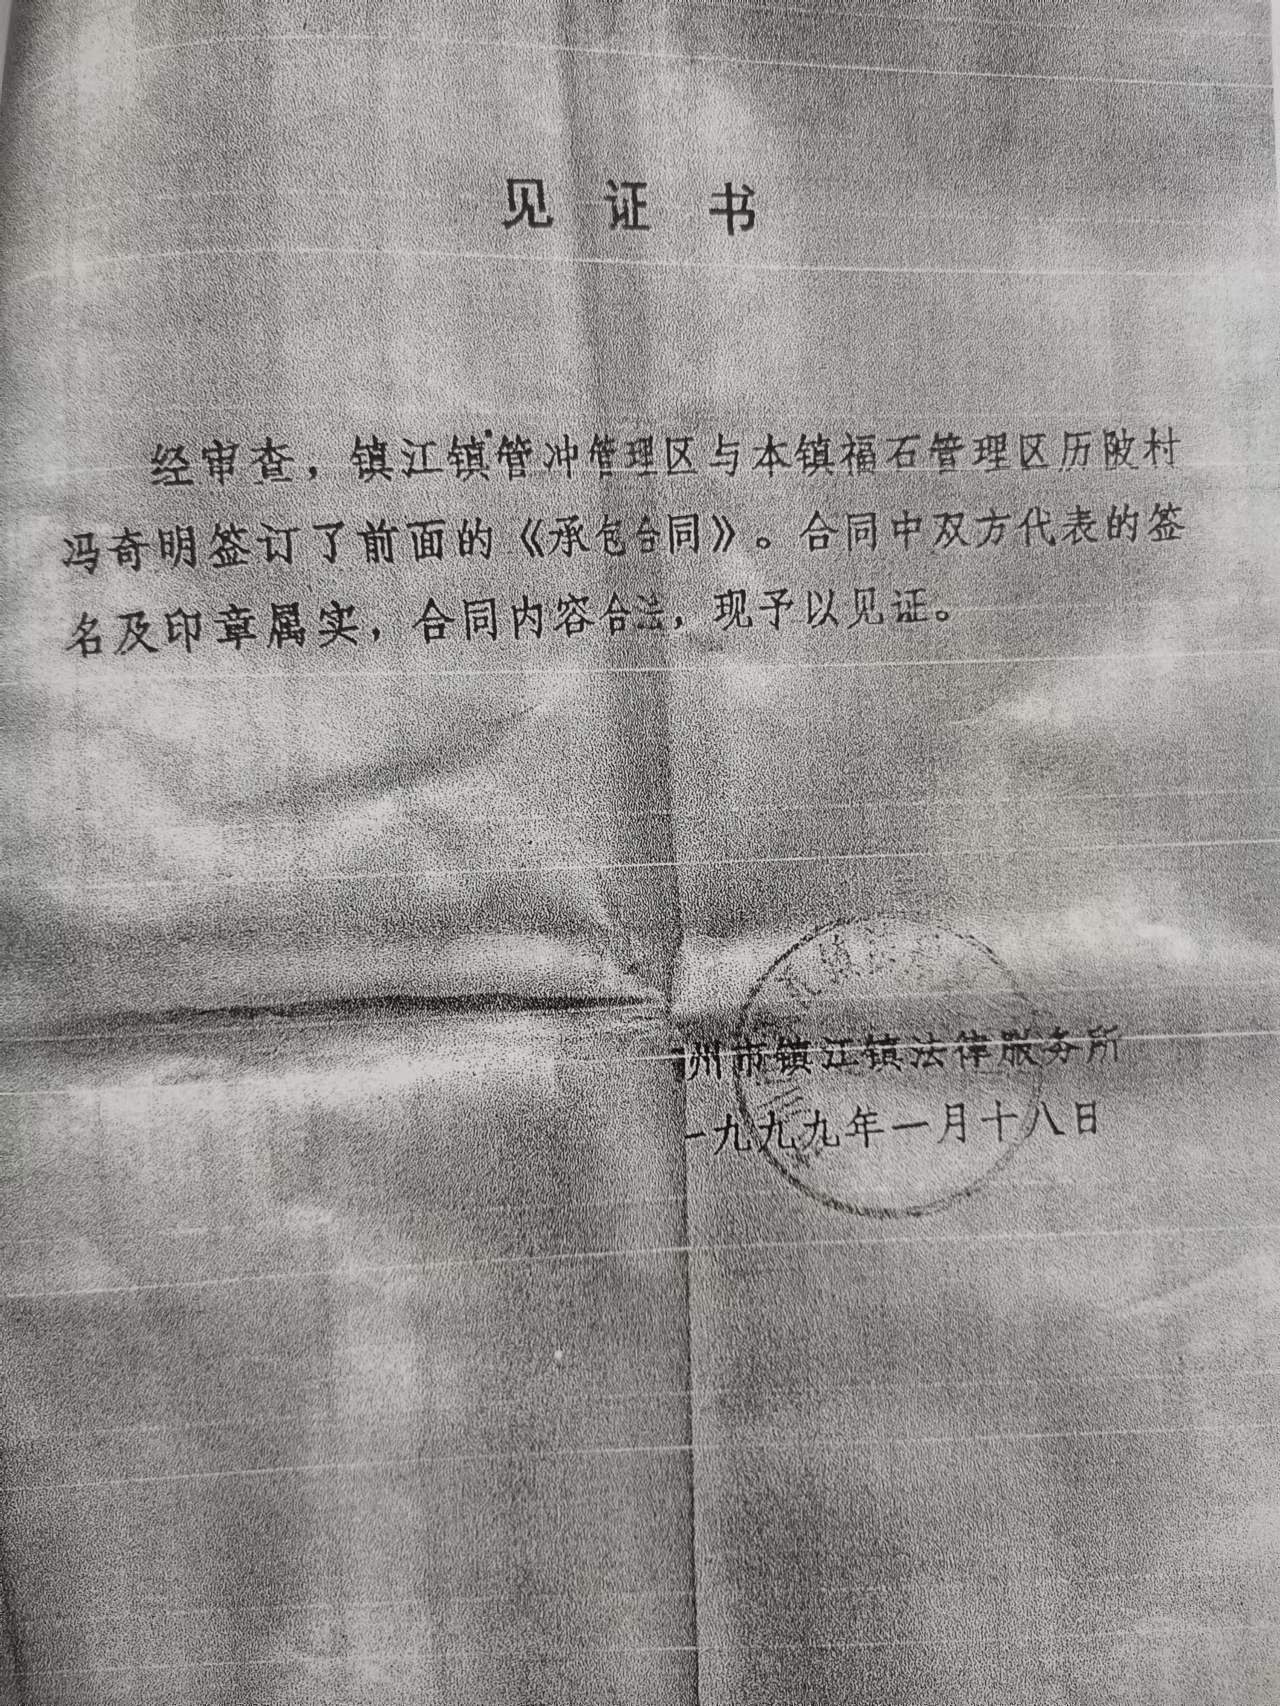 见证书
经审查，镇江镇管冲管理区与本镇福石管理区历陂村
冯奇明签订了前面的《承包合同》。合同中双方代表的签
名及印章属实，合同内容合法，现予以见证。
州市镇江镇法律服务所
一九九九年一月十八日